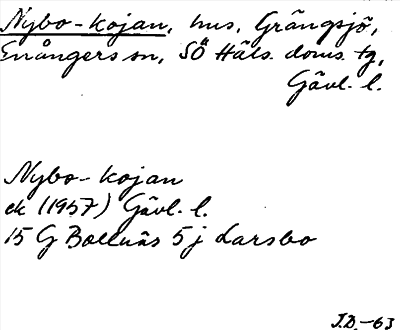 Nybo-kojan, hus, Grängsjö,
Enångers sn, SÖ Häls. doms. tg,
Gävl. l.
Nybo-kojan
ek (1957) Gävl. l.
15 G Bollnäs 5 j Larsbo
J.D. -63